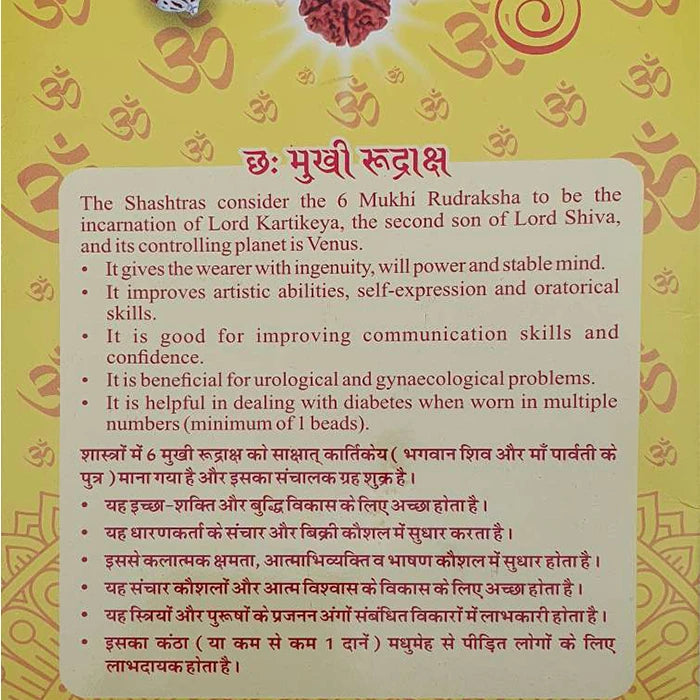 छः मुखी रूद्राक्ष
The Shashtras consider the 6 Mukhi Rudraksha to be the
incarnation of Lord Kartikeya, the second son of Lord Shiva,
and its controlling planet is Venus.
• It gives the wearer with ingenuity, will power and stable mind.
• It improves artistic abilities, self-expression and oratorical
skills.
• It is good for improving communication skills and
confidence.
• It is beneficial for urological and gynaecological problems.
• It is helpful in dealing with diabetes when worn in multiple
numbers (minimum of 1 beads).
शास्त्रों में 6 मुखी रूद्राक्ष को साक्षात् कार्तिकेय ( भगवान शिव और माँ पार्वती के
पुत्र ) माना गया है और इसका संचालक ग्रह शुक्र है।
• यह इच्छा-शक्ति और बुद्धि विकास के लिए अच्छा होता है।
• यह धारणकर्ता के संचार और बिक्री कौशल में सुधार करता है।
• इससे कलात्मक क्षमता, आत्माभिव्यक्ति व भाषण कौशल में सुधार होता है।
• यह संचार कौशलों और आत्म विश्वास के विकास के लिए अच्छा होता है।
• यह स्त्रियों और पुरूषों के प्रजनन अंगों संबंधित विकारों में लाभकारी होता है।
• इसका कंठा ( या कम से कम 1 दानें ) मधुमेह से पीड़ित लोगों के लिए
लाभदायक होता है।